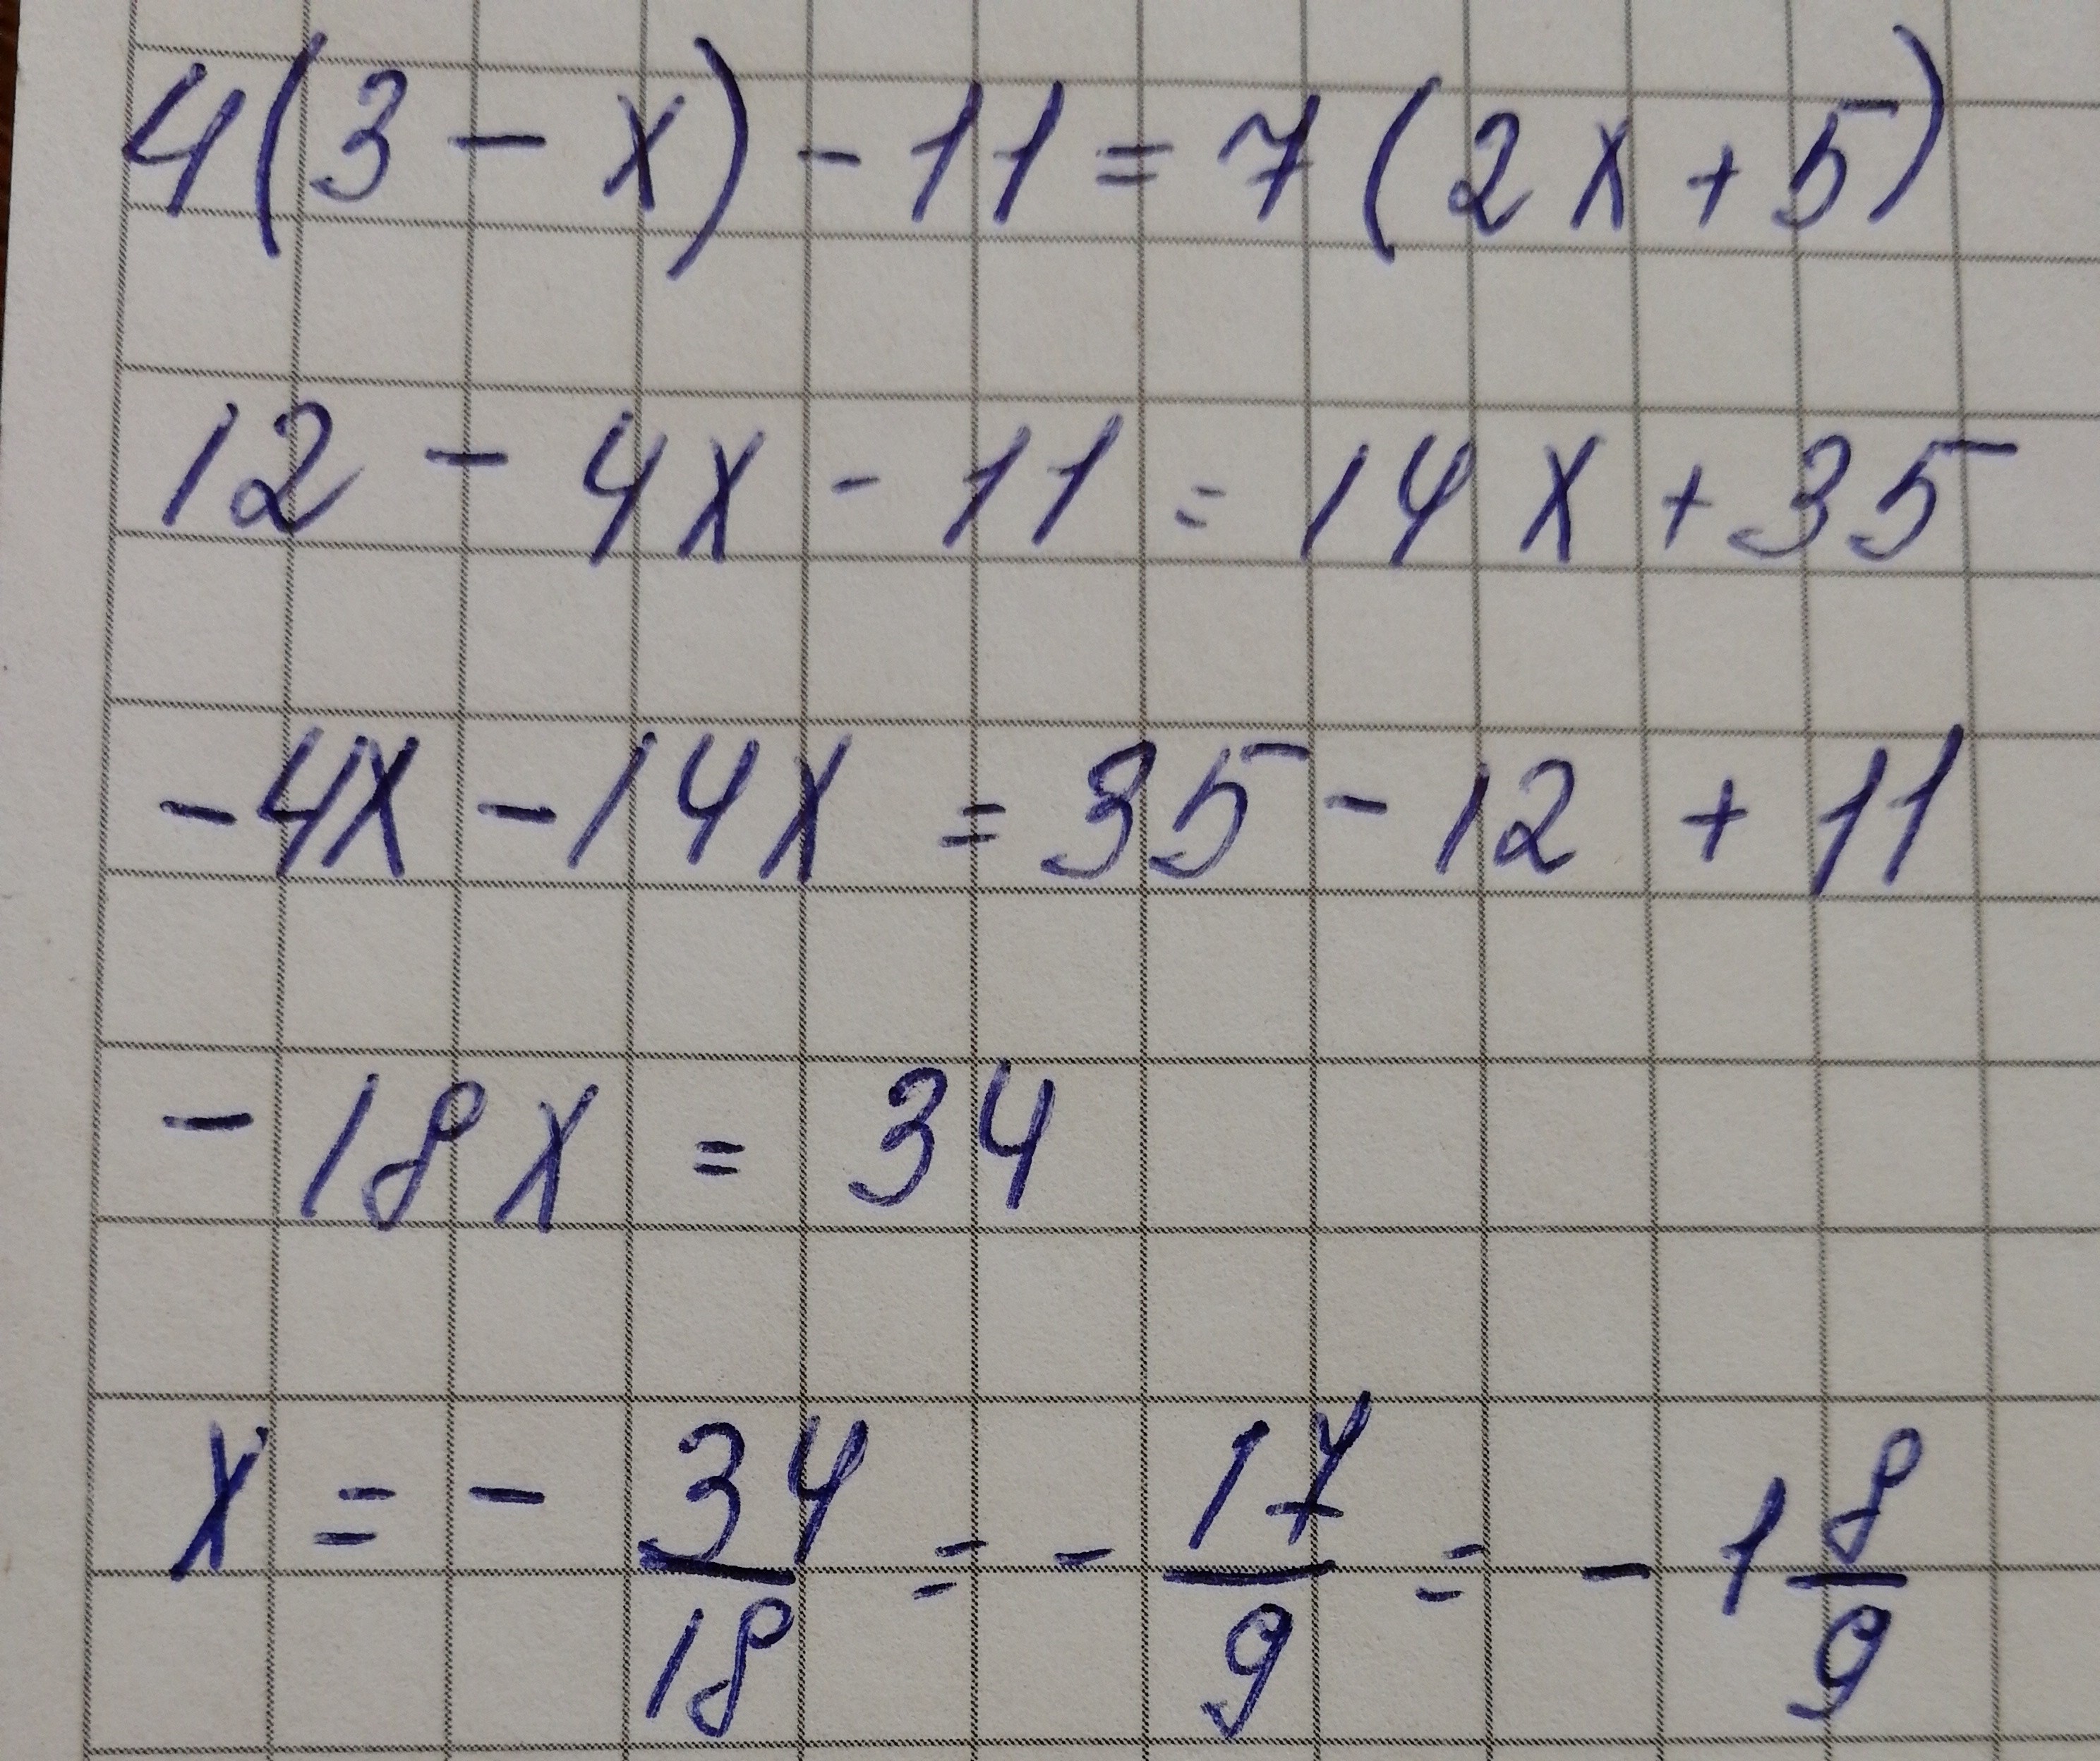 4(3 - x) - 11 = 7(2x + 5)
12 - 4x - 11 = 14x + 35
-4x - 14x = 35 - 12 + 11
- 18x = 34
x = - 34/18 = - 17/9 = - 1 8/9